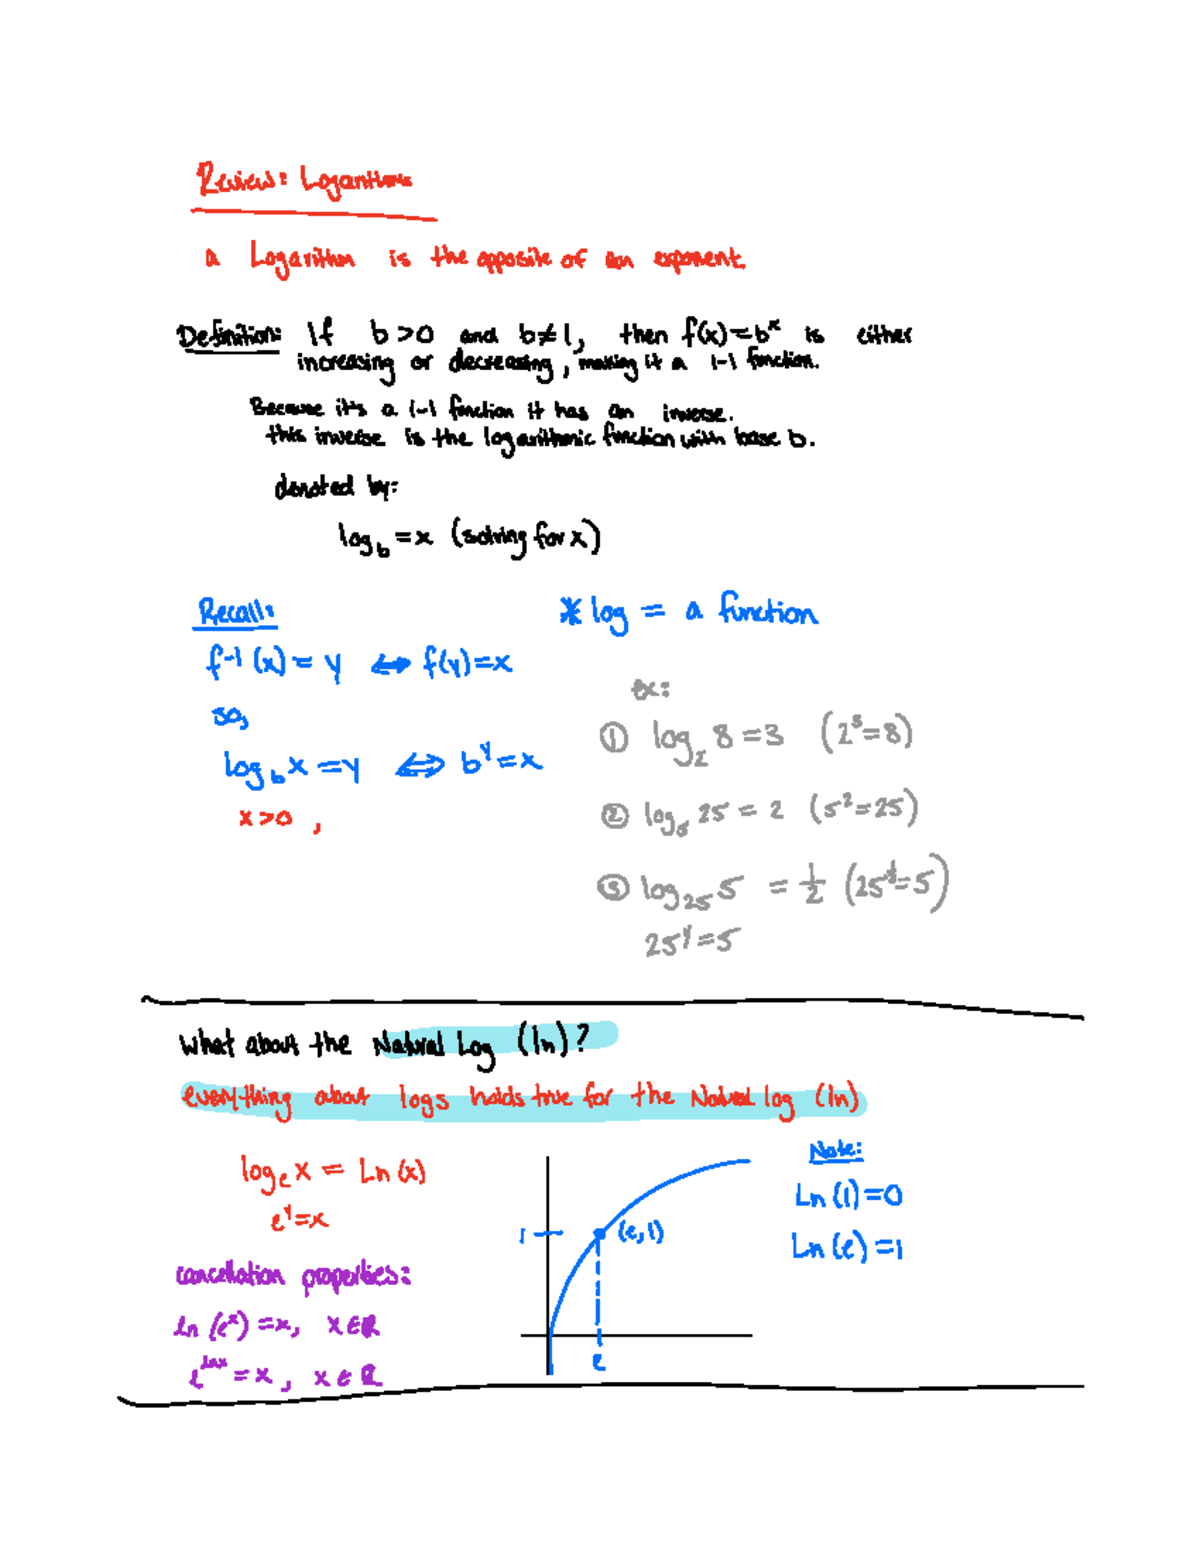 Review: Logarithms
a Logarithm is the opposite of an exponent.
Definition: If b>0 and b≠1, then f(x)=bˣ is either
increasing or decreasing, making it a 1-1 function.
Because it's a 1-1 function it has an inverse.
this inverse is the logarithmic function with base b.
denoted by:
log_b = x (solving for x)
Recall:
f⁻¹(x) = y ⟺ f(y)=x
so,
log_b x = y ⟺ b^y = x
x>0 ,
* log = a function
ex:
① log₂ 8 = 3 (2³=8)
② log₅ 25 = 2 (5²=25)
③ log₂₅ 5 = 1/2 (25^½=5)
25^y = 5
What about the Natural Log (ln)?
everything about logs holds true for the Natural log (ln)
log_e x = Ln(x)
e^y = x
cancellation properties:
ln(eˣ) = x, x∈ℝ
e^lnx = x, x∈ℝ
1
(e,1)
e
Note:
Ln(1)=0
Ln(e)=1